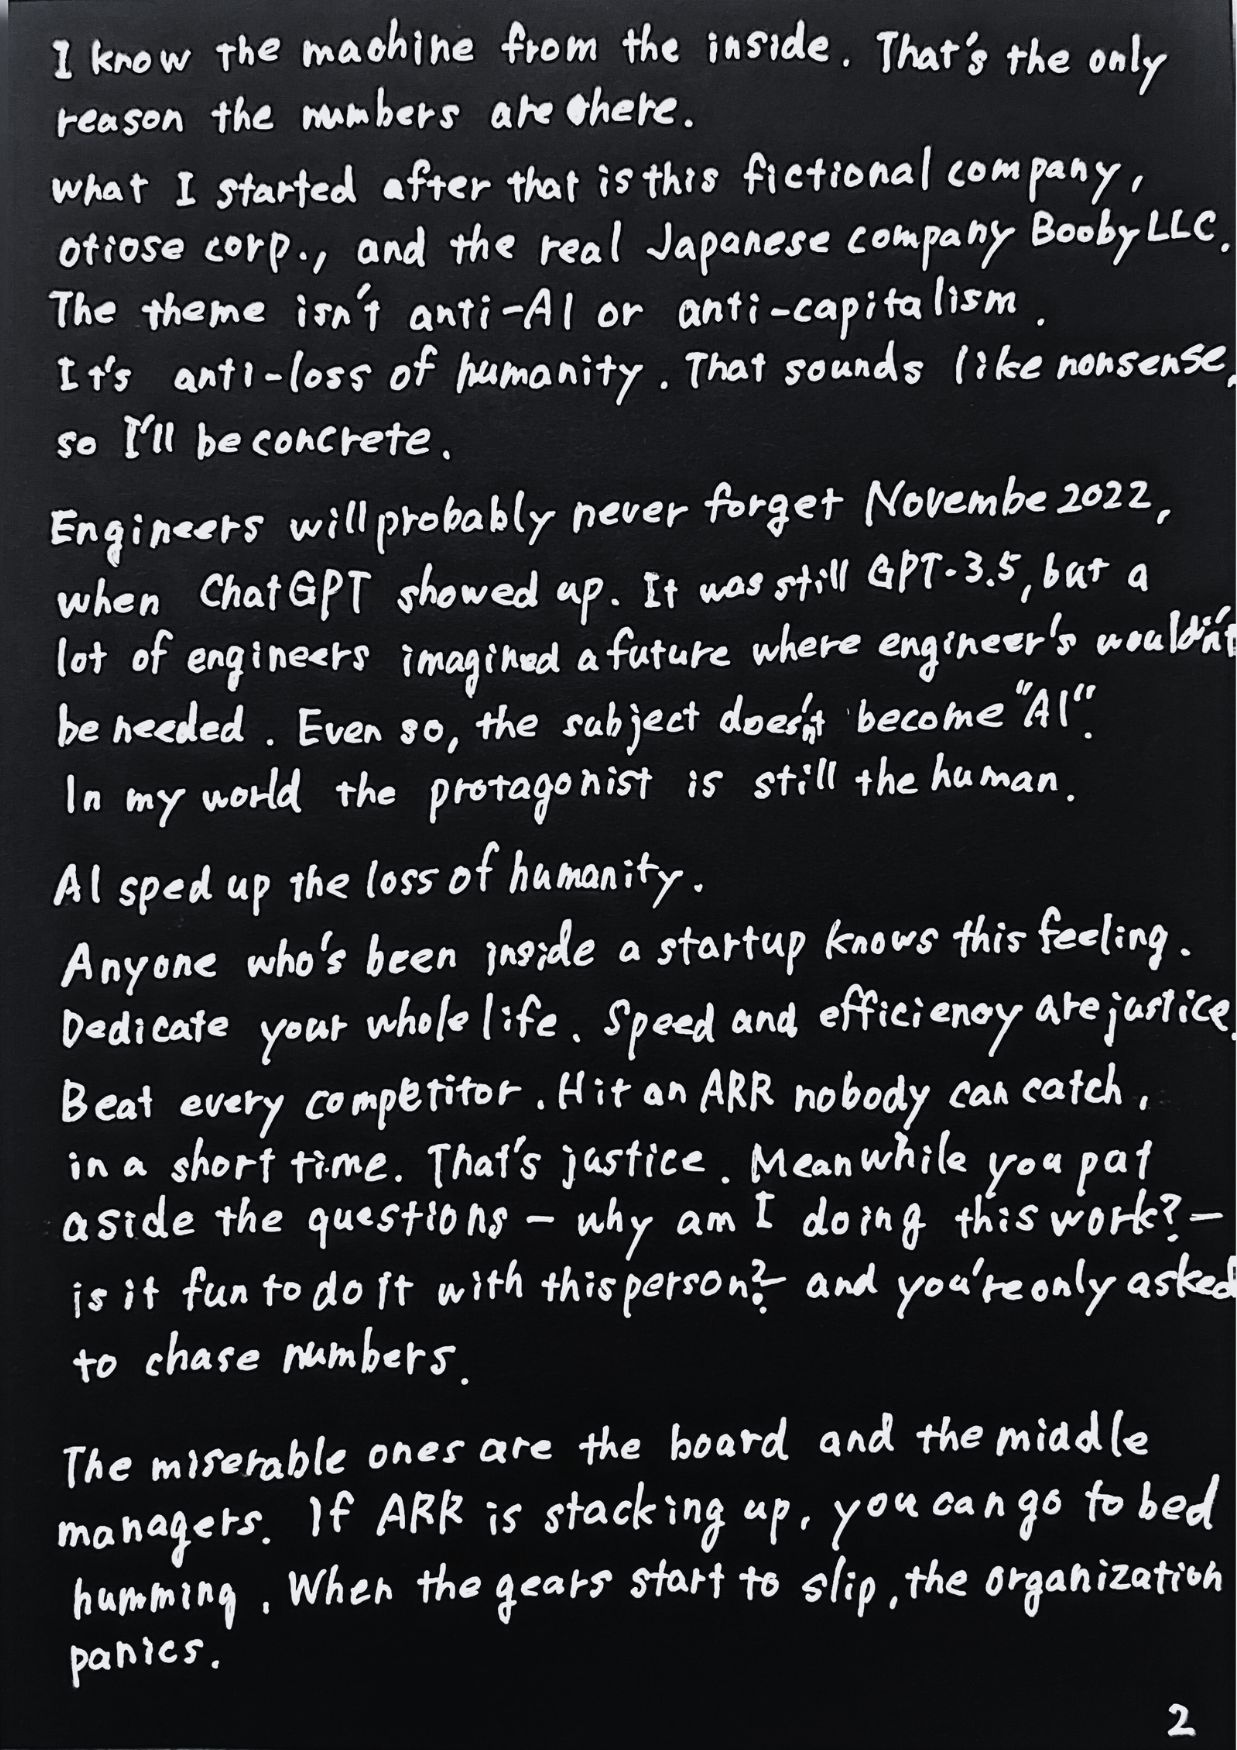 I know the machine from the inside. That's the only
reason the numbers are there.
what I started after that is this fictional company,
otiose corp., and the real Japanese company Booby LLC.
The theme isn't anti-AI or anti-capitalism.
It's anti-loss of humanity. That sounds like nonsense,
so I'll be concrete.
Engineers will probably never forget Novembe 2022,
when ChatGPT showed up. It was still GPT-3.5, but a
lot of engineers imagined a future where engineer's wouldn't
be needed. Even so, the subject doesn't become "AI".
In my world the protagonist is still the human.
AI sped up the loss of humanity.
Anyone who's been inside a startup knows this feeling.
Dedicate your whole life. Speed and efficiency are justice.
Beat every competitor. Hit an ARR nobody can catch,
in a short time. That's justice. Meanwhile you put
aside the questions – why am I doing this work? –
is it fun to do it with this person? – and you're only asked
to chase numbers.
The miserable ones are the board and the middle
managers. If ARR is stacking up, you can go to bed
humming. When the gears start to slip, the organization
panics.
2